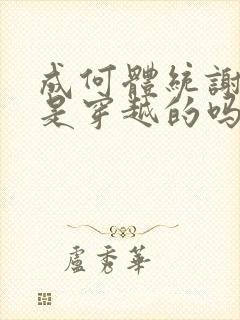 成何體統謝
是穿越的吗
盧秀華